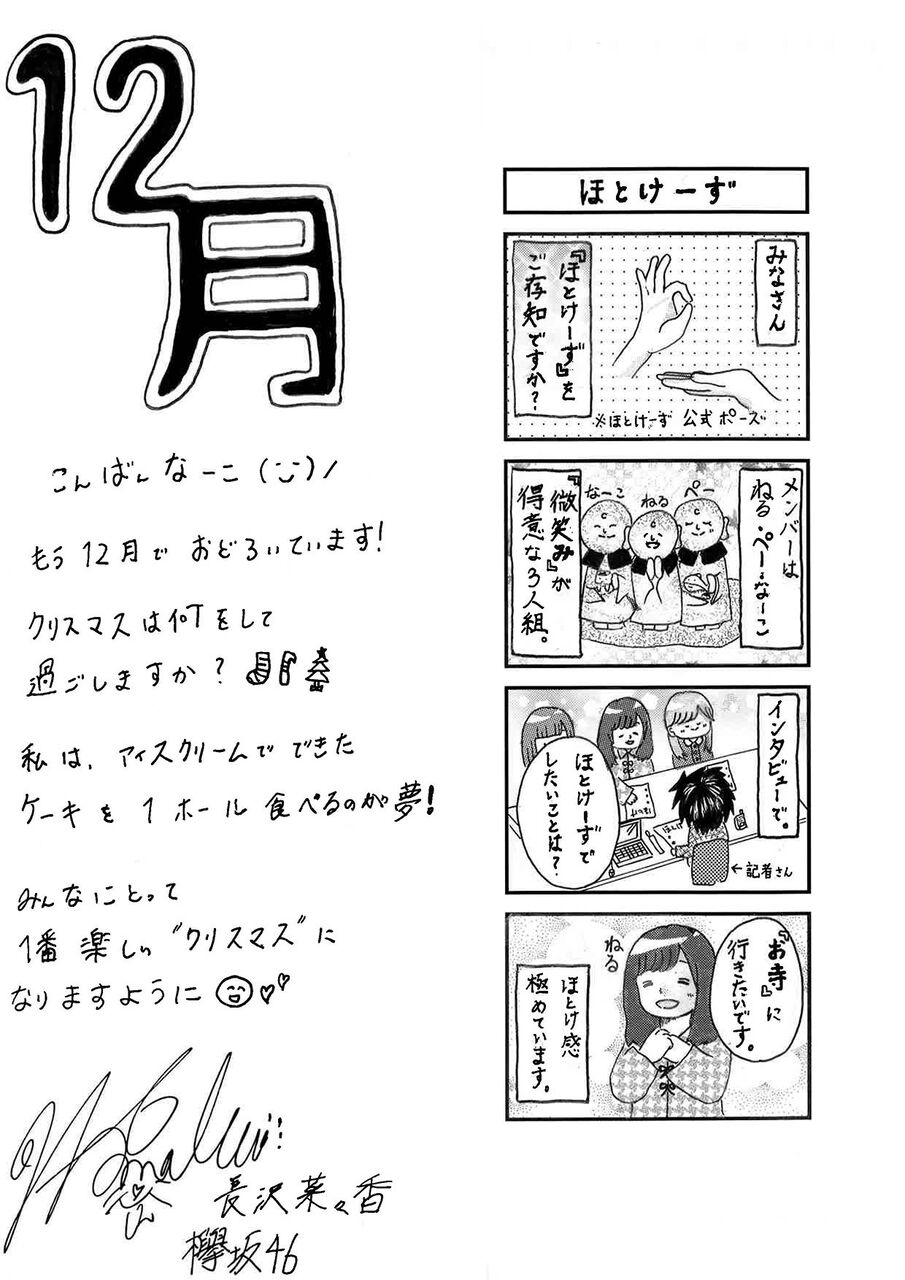 12月
こんばんなーこ(¨)ノ
もう12月で おどろいています!
クリスマスは何をして
過ごしますか?
私は、アイスクリームで できた
ケーキを 1ホール 食べるのが夢!
みんなにとって
1番 楽しい "クリスマス"に
なりますように
長沢菜々香
欅坂46
ほとけーず
みなさん
『ほとけーず』を
ご存知ですか?
※ほとけーず 公式ポーズ
メンバーは
ねる・ぺー・なーこ
ぺー
ねる
なーこ
『微笑み』が
得意な3人組。
インタビューで。
ほとけーずで
したいことは?
←記者さん
『お寺』に
行きたいです。
ねる
ほとけ感
極めています。